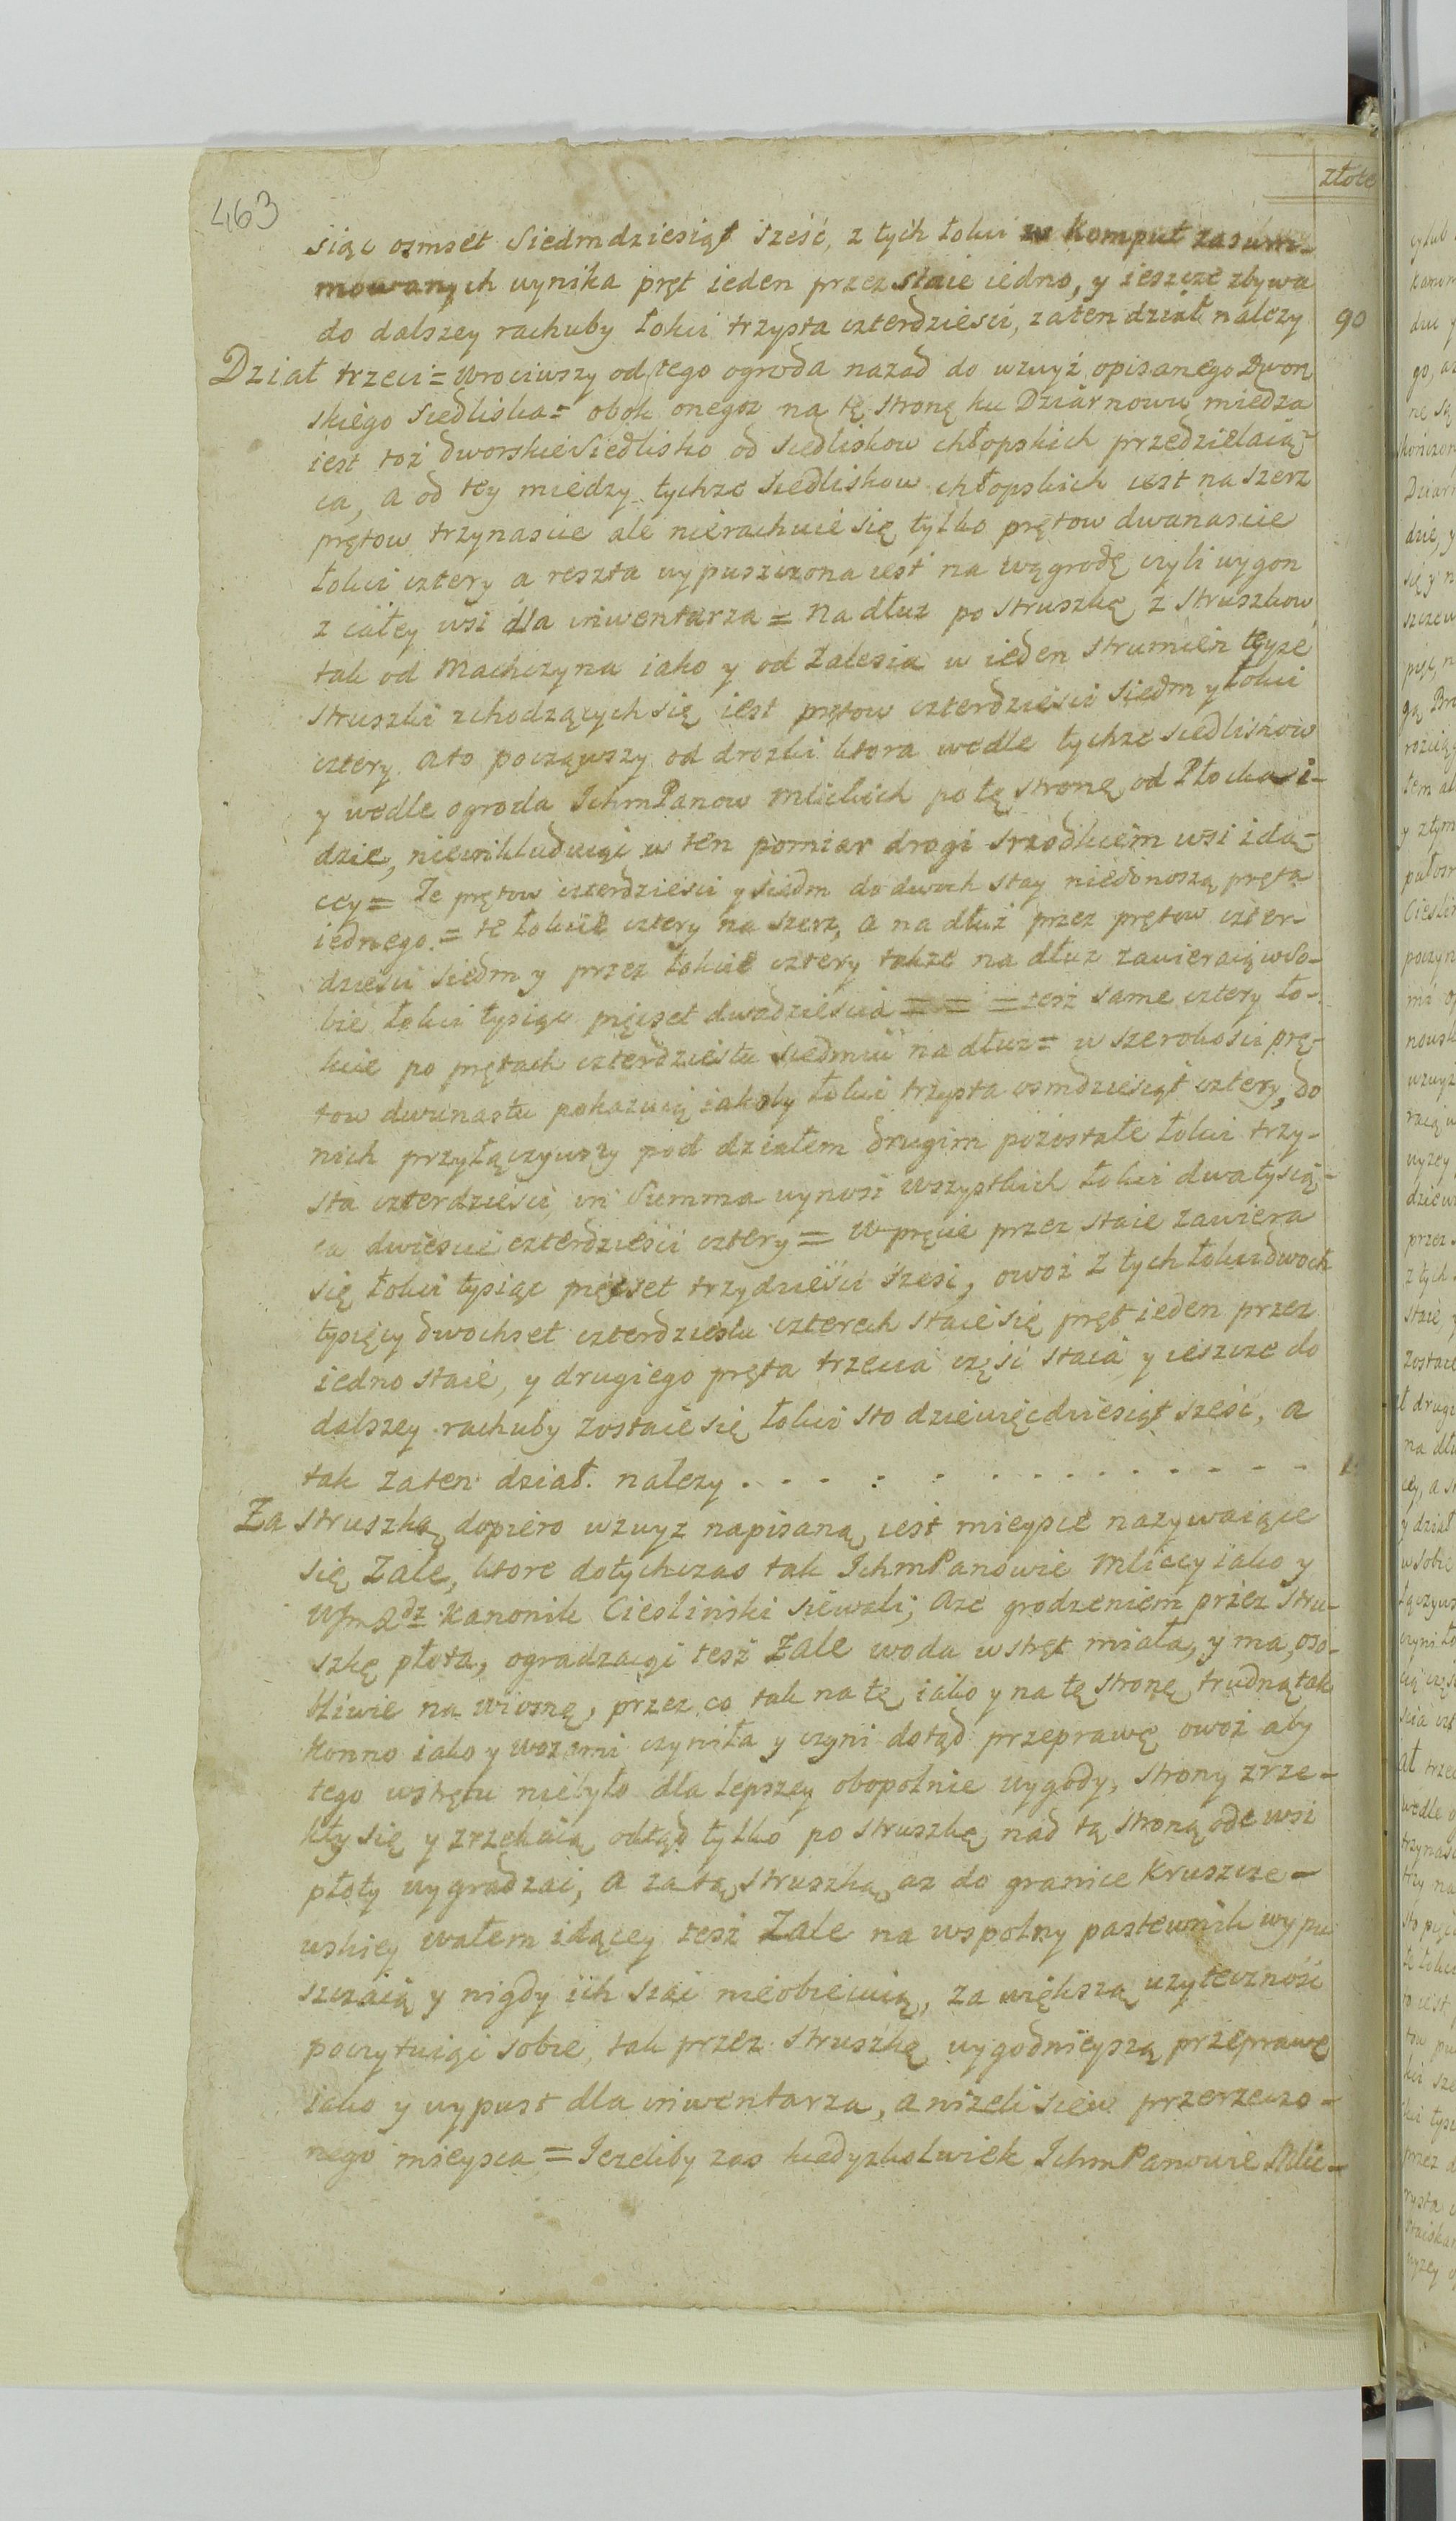 złote
463
siąc ozmset Siedmdziesiąt sześć, z tych łokci w Komput zasum-
mowanych wynika pręt ieden przez staie iedno, y ieszcze zbywa
do dalszey rachuby łokci trzysta czterdziesci, za ten dział nalezy 90
Dział trzeci = Wrociwszy od tego ogroda nazad do wzwyż opisanego Dwor
skiego Siedliska = obok onegoz na tę stronę ku Dziarnowu miedza
iest toż dworskie Siedlisko od siedliskow chłopskich przedzielaią-
ca, a od tey miedzy tychze siedliskow chłopskich iest na szerz
prętow trzynascie ale nierachuie się tylko prętow dwanascie
łokci cztery a reszta wypuszczona iest na wągrodę czyli wygon
z całey wsi dla inwentarza = na dłuz po struszkę z struszkow
tak od Machczyna iako y od Zalesia w ieden strumień teyze
struszki zchodzących się iest prętow czterdziesci siedm y łokci
cztery a to począwszy od drozki ktora wedle tychze siedliskow
y wedle ogroda IchmPanow Mlickich po tę stronę od Płocka i-
dzie, niewikłuduiąc w ten pomiar drogi srzodkiem wsi idą-
cey = Te prętow czterdziesci y siedm do dwoch stay niedonoszą pręta
iednego. = te łokcie cztery na szerz, a na dłuż przez prętow czter-
dziesci siedm y przez łokcie cztery takze na dłuz zawieraią w so-
bie łokci tysiąc pięcset dwadziescia = = = też same cztery ło-
kcie po prętach czterdziestu siedmiu na dłuz = w szerokosci prę-
tow dwunastu pokazuią iakoby łokci trzysta osmdziesiąt cztery, do
nich przyłączywszy pod działem drugim pozostałe łokci trzy-
sta czterdziesci, in Summa wynosi wszystkich łokci dwa tysią-
ca dwiescie czterdziesci cztery = W pręcie przez staie zawiera
się łokci tysiąc pięcset trzydziesci szesc, owoż z tych łokci dwoch
tysięcy dwochset czterdziestu czterech staie się pręt ieden przez
iedno staie, y drugiego pręta trzecia częsc staia y ieszcze do
dalszey rachuby zostaie się łokci sto dziewięcdziesiąt szesc, a
tak za ten dział nalezy . . . . . . . . . . . . . .
Za struszką dopiero wzwyz napisaną iest mieysce nazywaiące
się Zale, ktore dotychczas tak IchmPanowie Mliccy iako y
Kanonik Ciesliński siewali; Aże grodzeniem przez stru-
szkę płota, ogradzaiąc tesz Zale woda wstręt miała, y ma, oso-
bliwie na wiosnę, przez co tak na tę iako y na tę stronę trudną tak
konno iako y wozami czyniła y czyni dotąd przeprawę owoż aby
tego wstrętu niebyło dla lepszey obopolnie wygody, strony zrze-
kły się y zrzekaią odtąd tylko po struszkę nad tą stroną ode wsi
płoty wygradzac, a za tą struszką az do granice Kruszcze-
wskiey wałem idącey tesz Zale na wspolny pastewnik wypu
szczaią y nigdy ich siac nieobiecuią, za większą uzytecznośc
poczytuiąc sobie, tak przez struszkę wygodnieyszą przeprawę
iako y wypust dla inwentarza, anizeli siew przerzeczo-
nego mieysca = Iezeliby zas kiedyzkolwiek IchmPanowie Mlic-